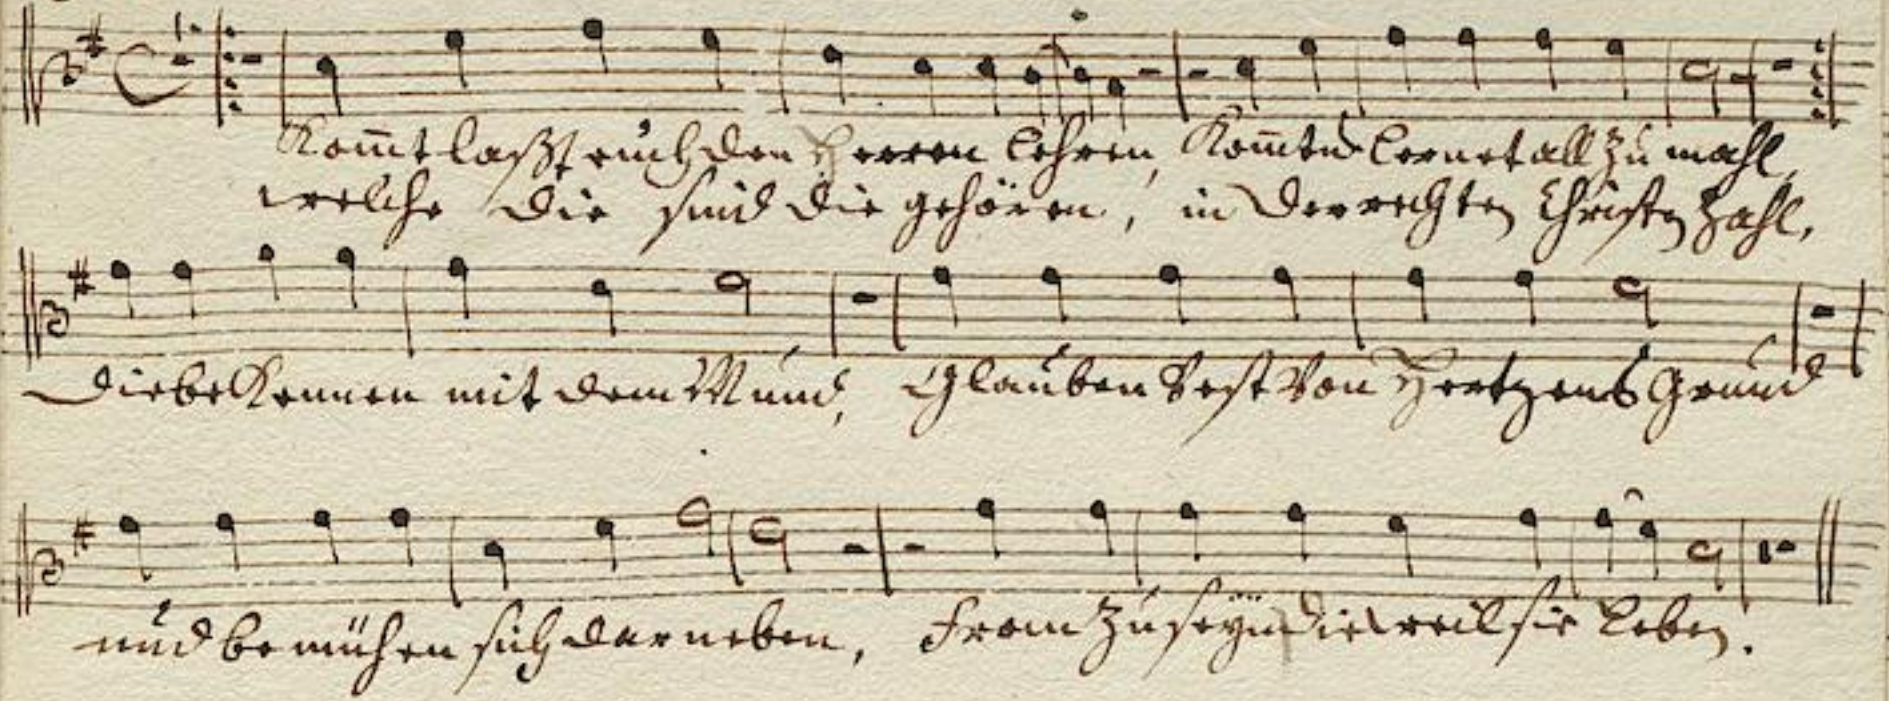 Kom̅t laßt euch den Herren lehren, Kom̅t u. lernet all zu mahl,
welche die sind die gehören, in der rechten Christen Zahl,
Die beKennen mit dem Mund, Glauben Vest Von Hertzens Grund
und bemühen sich darneben, From Zu seÿn dieweil sie leben.